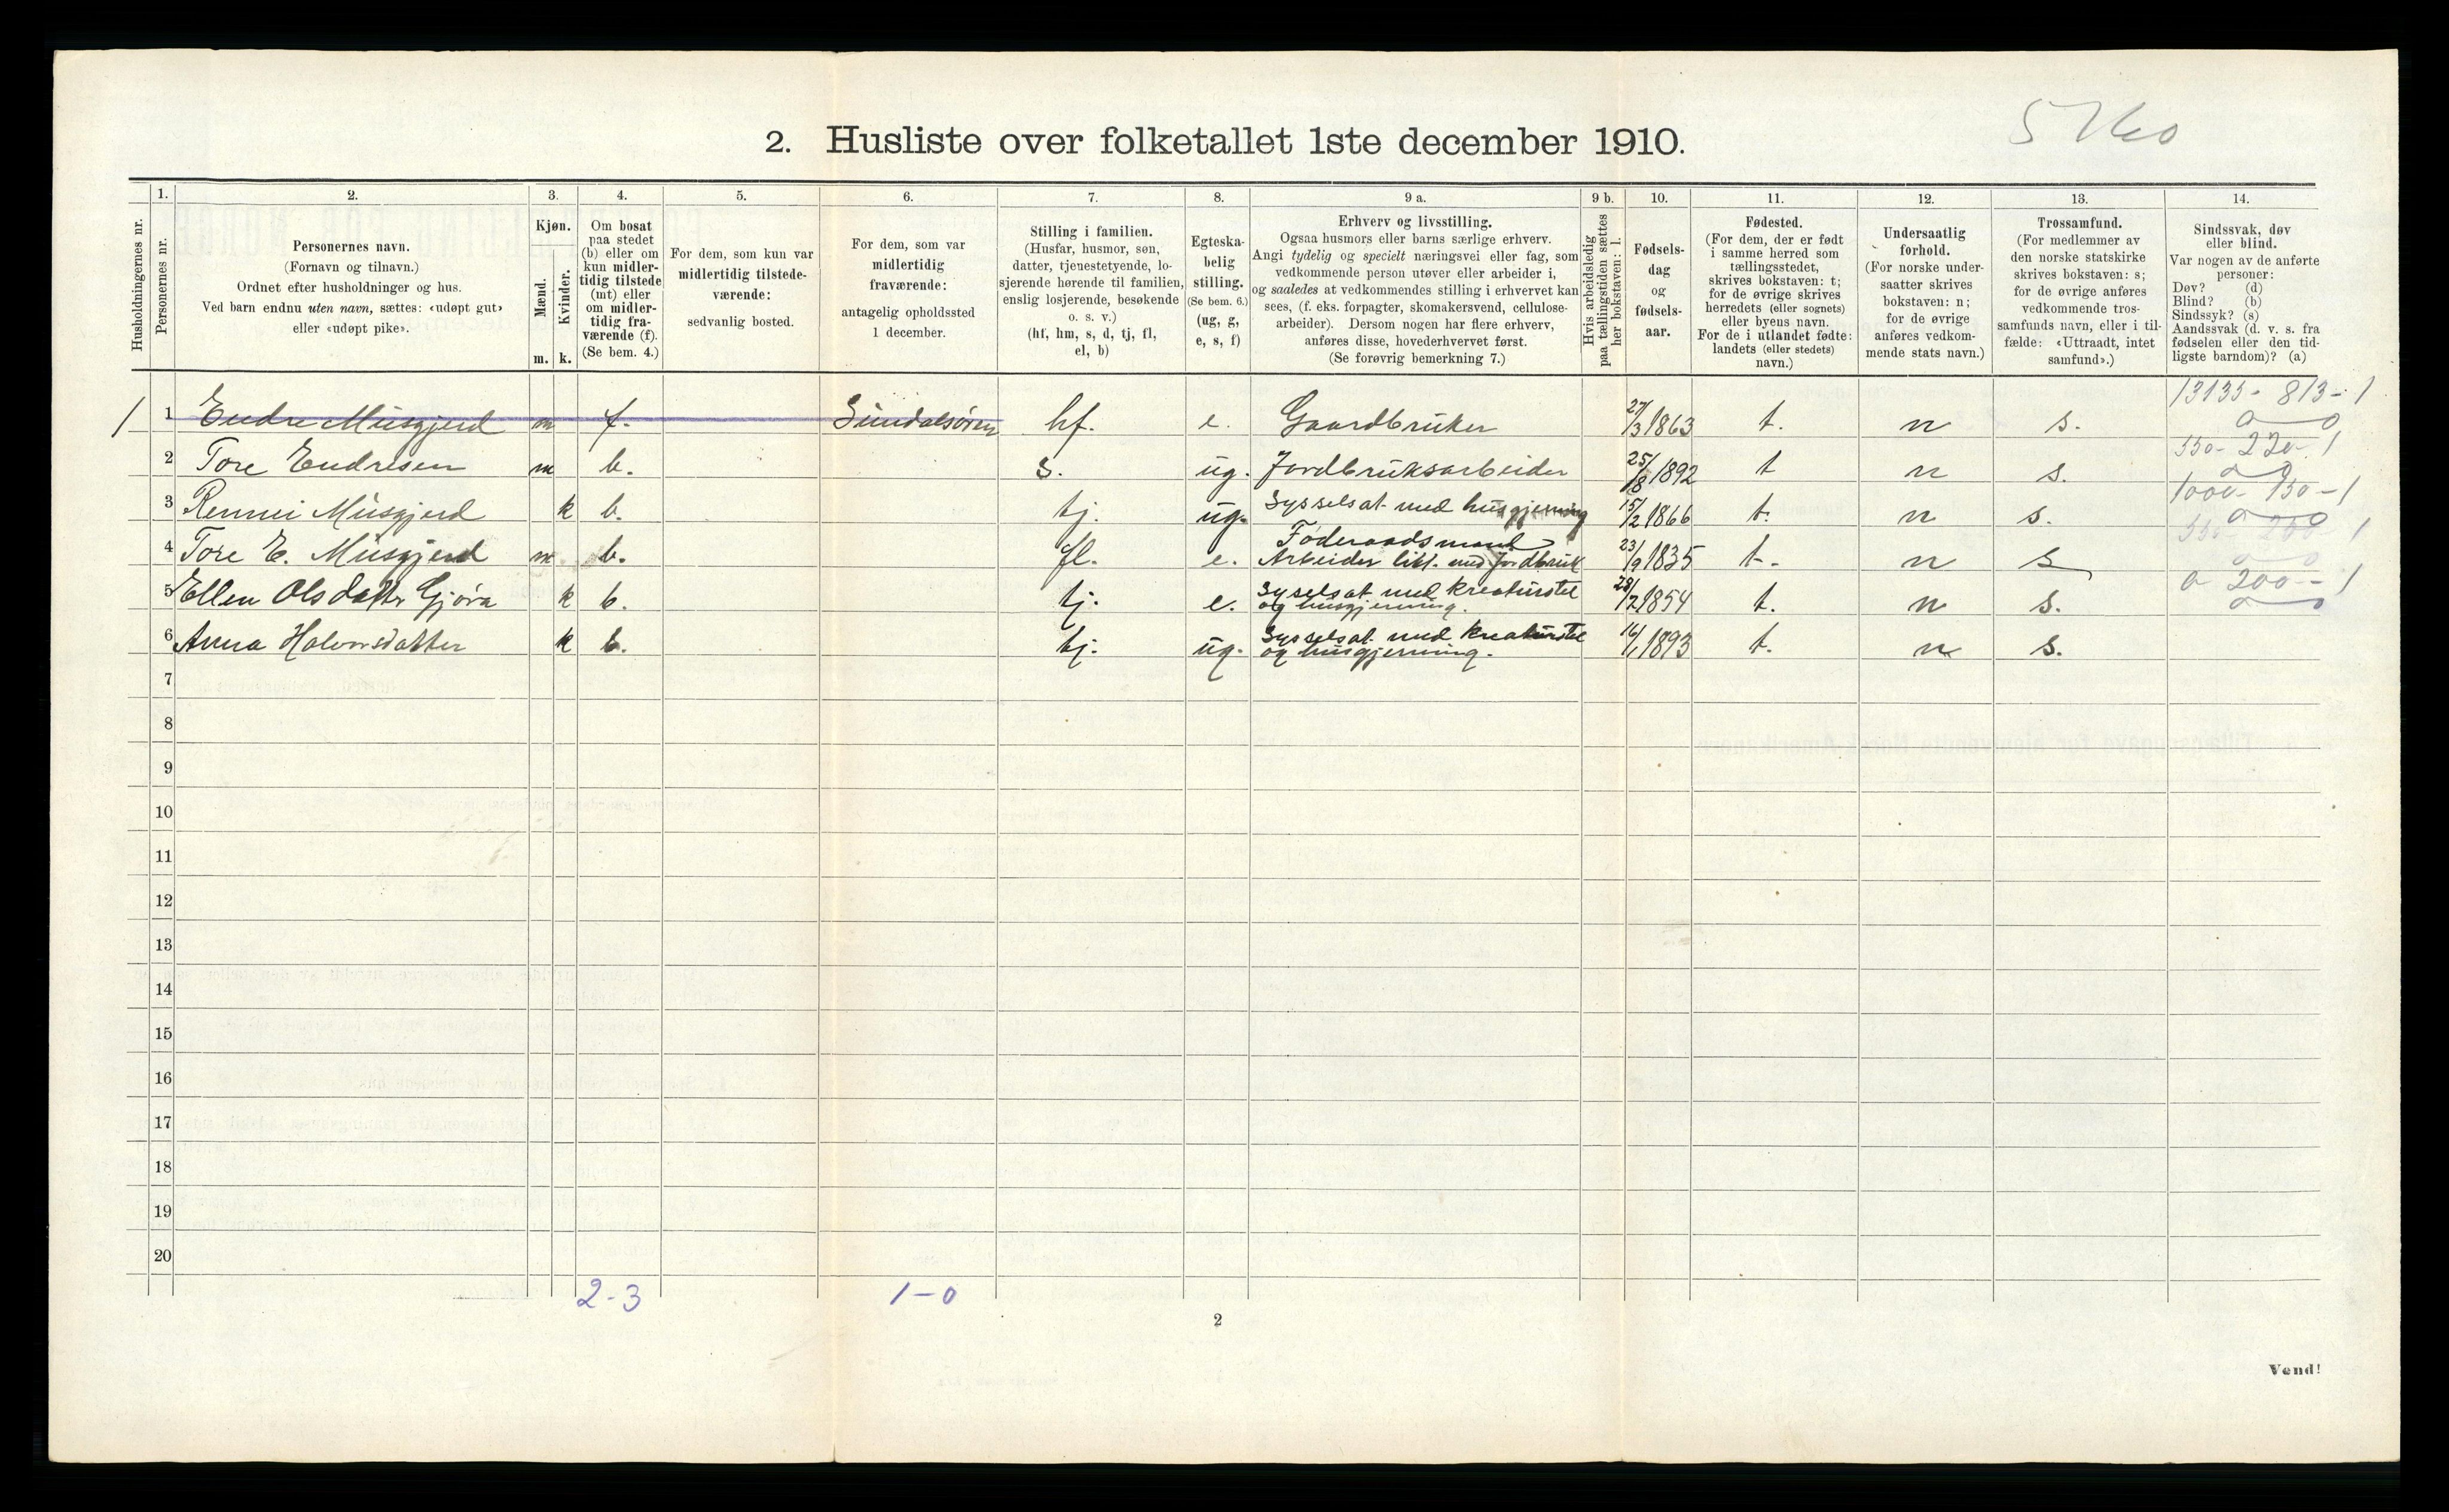 2. Husliste over folketallet 1ste december 1910.
1. 2. 3. 4. 5. 6. 7. 8. 9 a. 9 b. 10. 11. 12. 13. 14.
Husholdningernes nr.
Personernes nr.
Personernes navn.
(Fornavn og tilnavn.)
Ordnet efter husholdninger og hus.
Ved barn endnu uten navn, sættes: «udøpt gut»
eller «udøpt pike».
Kjøn.
Mænd.
Kvinder.
m. k.
Om bosat
paa stedet
(b) eller om
kun midler-
tidig tilstede
(mt) eller
om midler-
tidig fra-
værende (f).
(Se bem. 4.)
For dem, som kun var
midlertidig tilstede-
værende:
sedvanlig bosted.
For dem, som var
midlertidig
fraværende:
antagelig opholdssted
1 december.
Stilling i familien.
(Husfar, husmor, søn,
datter, tjenestetyende, lo-
sjerende hørende til familien,
enslig losjerende, besøkende
o. s. v.)
(hf, hm, s, d, tj, fl,
el, b)
Egteska-
belig
stilling.
(Se bem. 6.)
(ug, g,
e, s, f)
Erhverv og livsstilling.
Ogsaa husmors eller barns særlige erhverv.
Angi tydelig og specielt næringsvei eller fag, som
vedkommende person utøver eller arbeider i,
og saaledes at vedkommendes stilling i erhvervet kan
sees, (f. eks. forpagter, skomakersvend, cellulose-
arbeider). Dersom nogen har flere erhverv,
anføres disse, hovederhvervet først.
(Se forøvrig bemerkning 7.)
Hvis arbeidsledig
paa tællingstiden sættes
her bokstaven: l.
Fødsels-
dag
og
fødsels-
aar.
Fødested.
(For dem, der er født
i samme herred som
tællingsstedet,
skrives bokstaven: t;
for de øvrige skrives
herredets (eller sognets)
eller byens navn.
For de i utlandet fødte:
landets (eller stedets)
navn.)
Undersaatlig
forhold.
(For norske under-
saatter skrives
bokstaven: n;
for de øvrige
anføres vedkom-
mende stats navn.)
Trossamfund.
(For medlemmer av
den norske statskirke
skrives bokstaven: s;
for de øvrige anføres
vedkommende tros-
samfunds navn, eller i til-
fælde: «Uttraadt, intet
samfund».)
Sindssvak, døv
eller blind.
Var nogen av de anførte
personer:
Døv? (d)
Blind? (b)
Sindssyk? (s)
Aandssvak (d. v. s. fra
fødselen eller den tid-
ligste barndom)? (a)
1 1 Endre Musgjerd m f. Sundalsøren hf. e. Gaardbruker 27/3 1863 t. n s. 13135 - 813 - 1
2 Tore Endresen m b. s. ug. Jordbruksarbeider 25/8 1892 t n s. 330 - 220 - 1
3 Rennei Musgjerd k b. tj. ug. Sysselsat med husgjerning 15/2 1866 t. n s. 1000 - 130 - 1
4 Tore E. Musgjerd m b. fl. e. Føderaadsmand
Arbeider litt med Jordbruk 23/9 1835 t. n s
5 Ellen Olsdatter Gjøra k b. tj. e. Syselsat med Kreaturstel
og husgjerning. 28/2 1854 t. n s. 0 200 - 1
6 Anna Halvorsdatter k b. tj. ug. Sysselsat med Kreaturstel
og husgjerning. 16/1 1893 t. n s.
7
8
9
10
11
12
13
14
15
16
17
18
19
20
2-3 1-0
2
Vend!